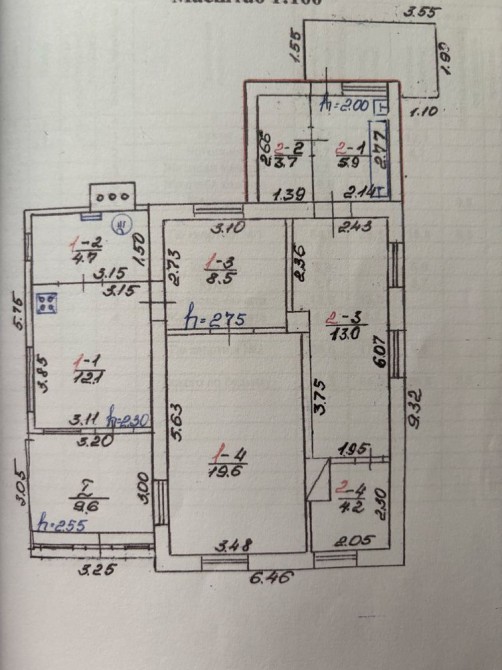 Масштаб 1:100
3.55
1.55
1.90
1.10
h=2.00
Т
2-2
3.7
2.66
2-1
5.9
2.77
1.39
2.14
Г
1-2
4.7
1.50
3.15
3.15
3.10
2.43
2.73
1-3
8.5
2.36
2-3
13.0
h=2.75
5.75
3.85
1-1
12.1
3.11
h=2.30
6.07
9.32
3.75
5.63
1-4
19.6
3.20
3.05
I
9.6
3.00
h=2.55
3.25
1.95
2-4
4.2
2.30
2.05
3.48
6.46